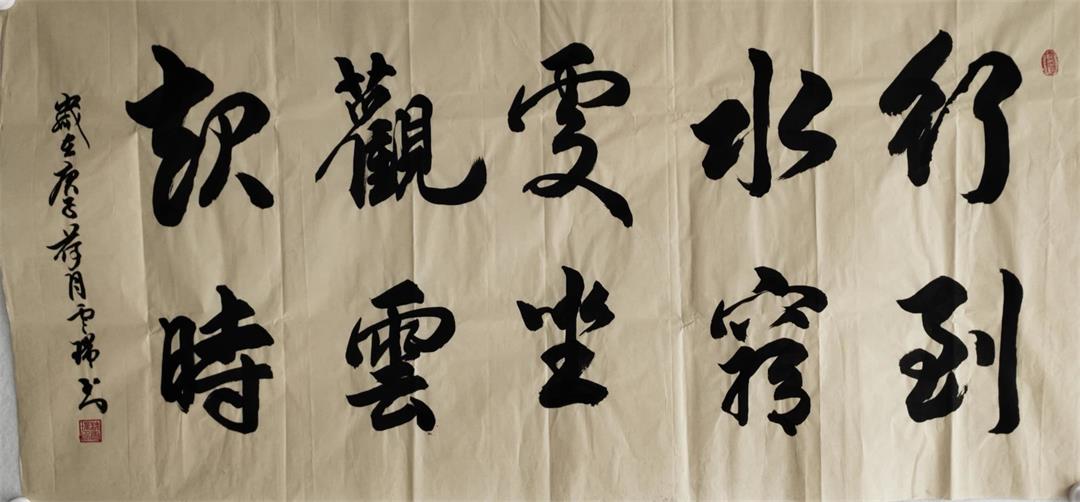 行到
水窮
處坐
觀雲
起時
歲在庚子荷月雲瑞书